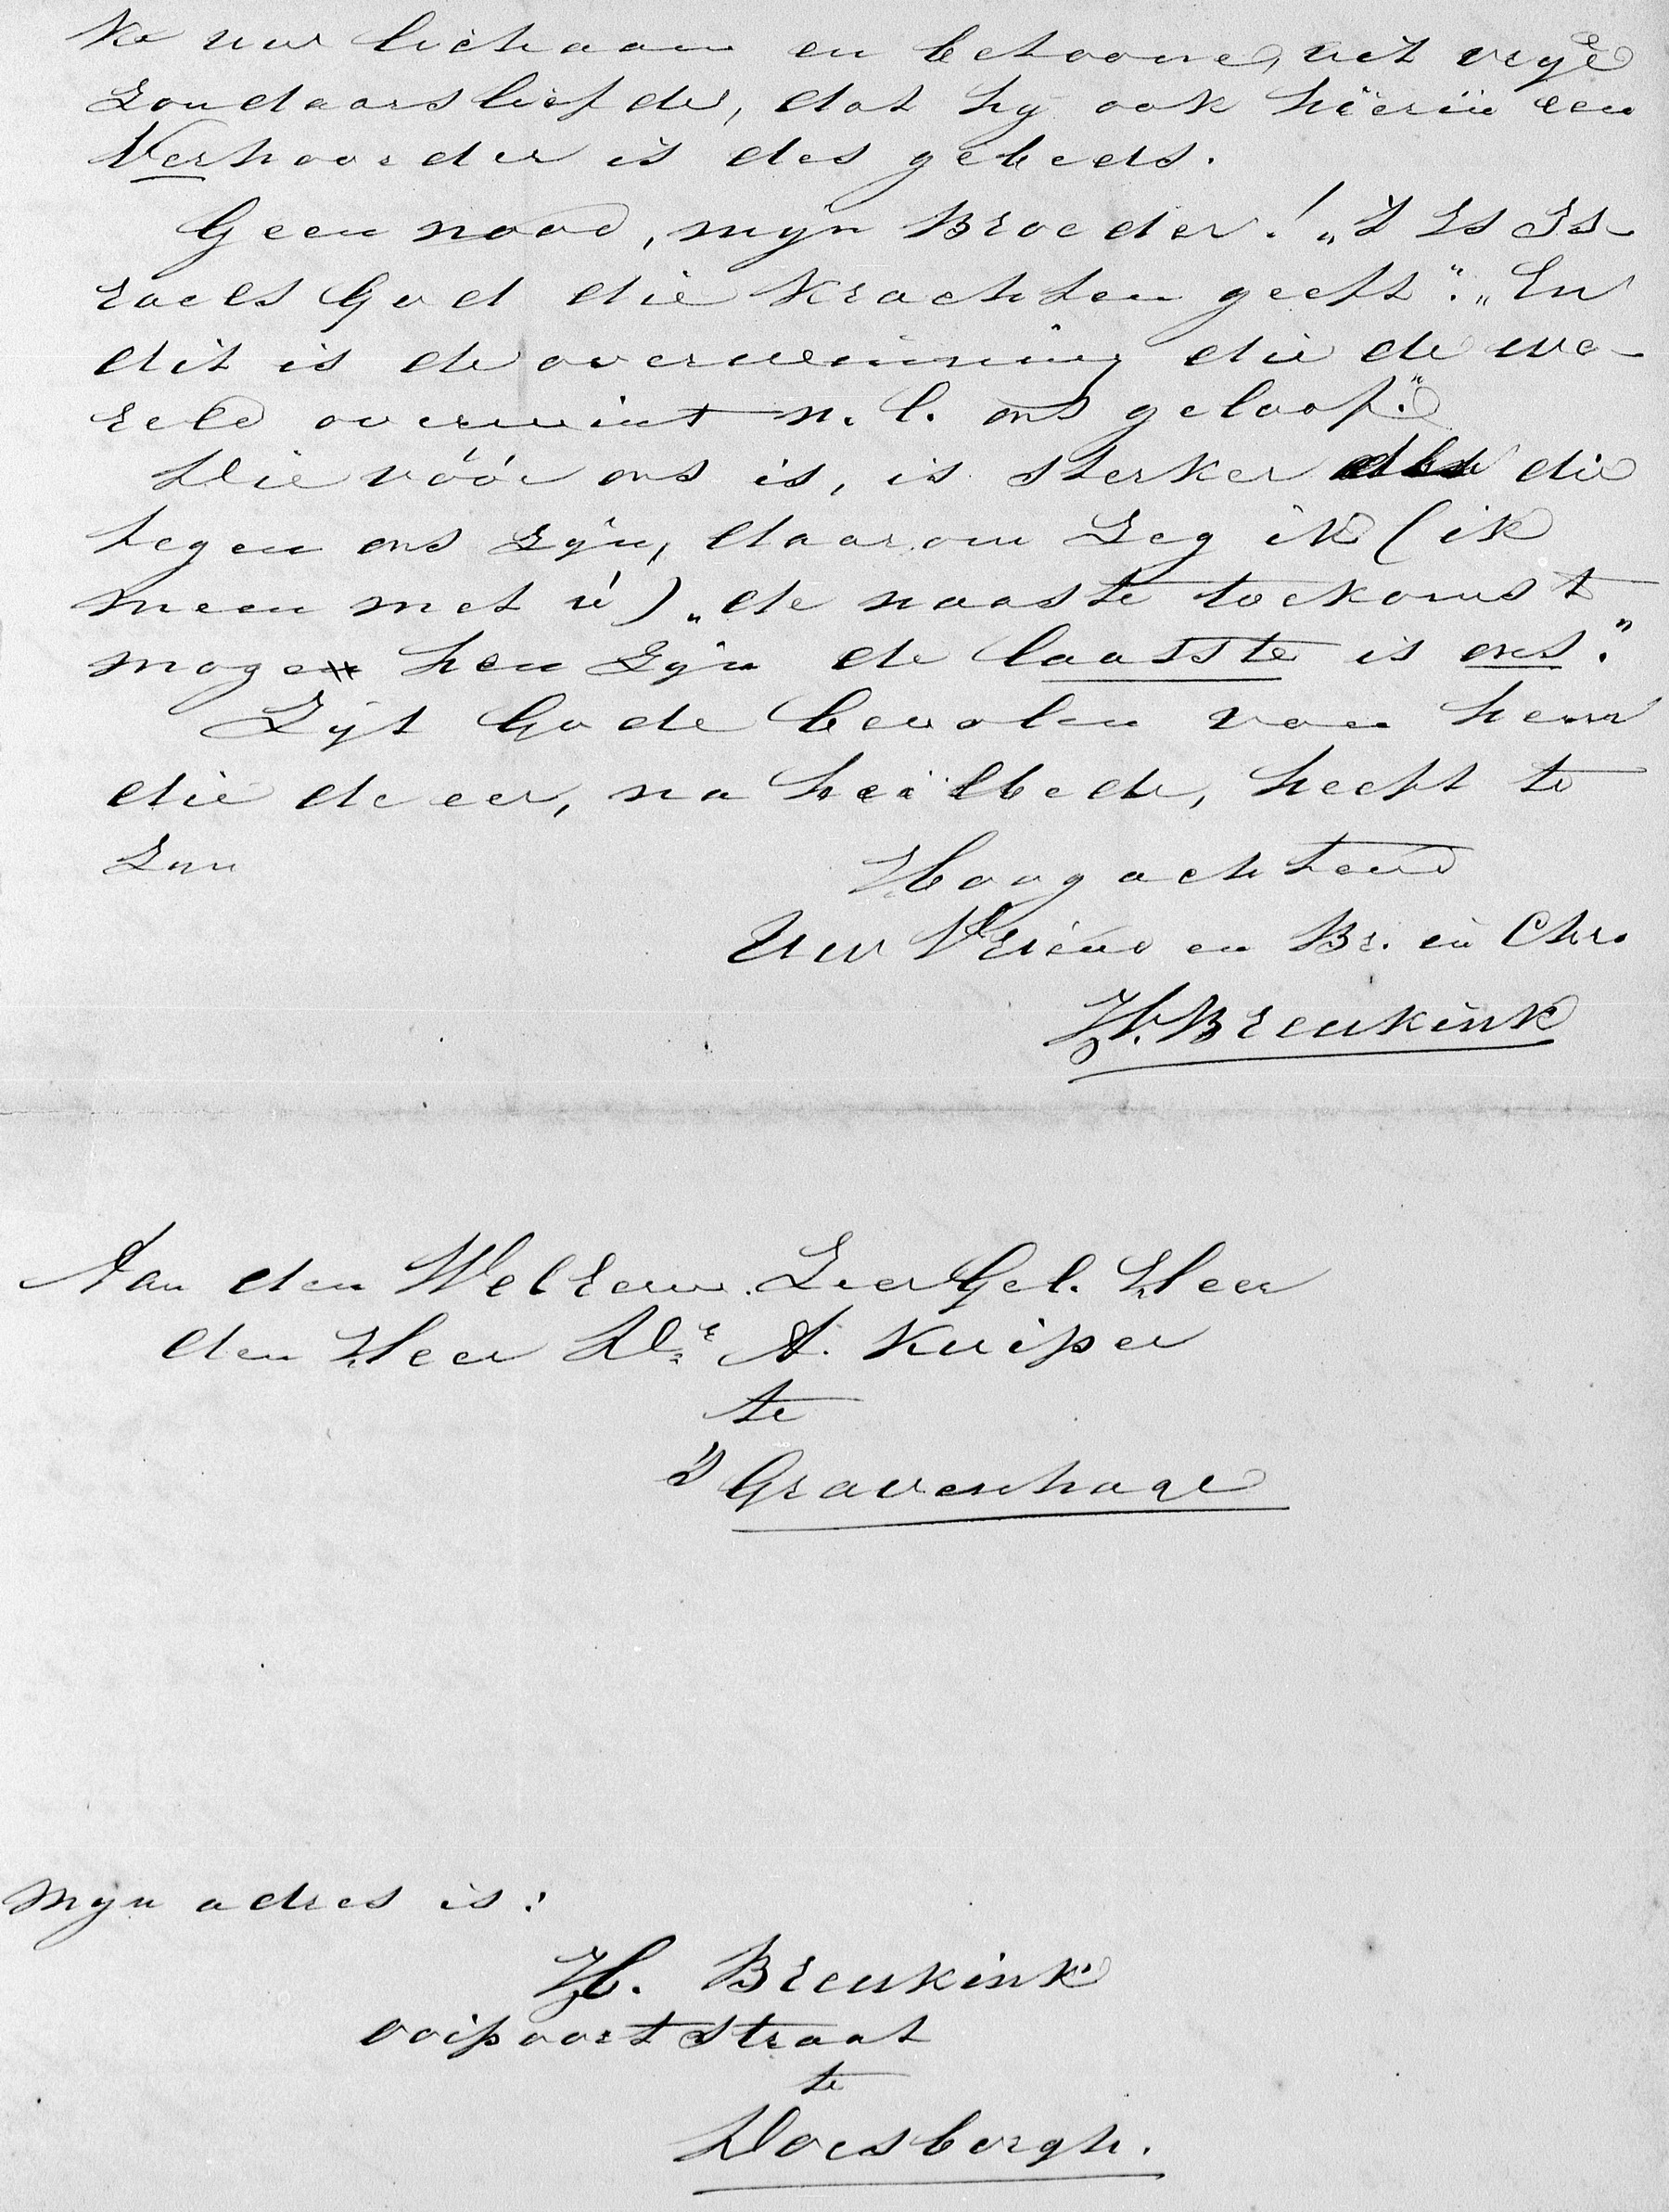 ke uw lichaam en betoone, uit vrye
Zondaarsliefde, dat hy ook hierin een
Verhoorder is des gebeds.
Geen nood, mijn Broeder! „'t Is Is-
raels God die Krachten geeft". „En
dit is de overwinning die de we-
reld overwint n.l. ons geloof."
Die vóór ons is, is sterker die
tegen ons zijn, daarom zeg ik (ik
meen met ú) „de naaste toekomst
moge hen zijn de laatste is ons."
Zijt Gode bevolen van hem
die de eer, na heilbede, heeft te
Zyn
Hoogachtend
Uw Vriend en Br. in Chr.
H. Breukink
Aan den WelEerw. ZeerGel. Heer
den Heer Dr. A. Kuiper
te
's Gravenhage
Myn adres is:
H. Breukink
ooipoortstraat
te
Doesborgh.